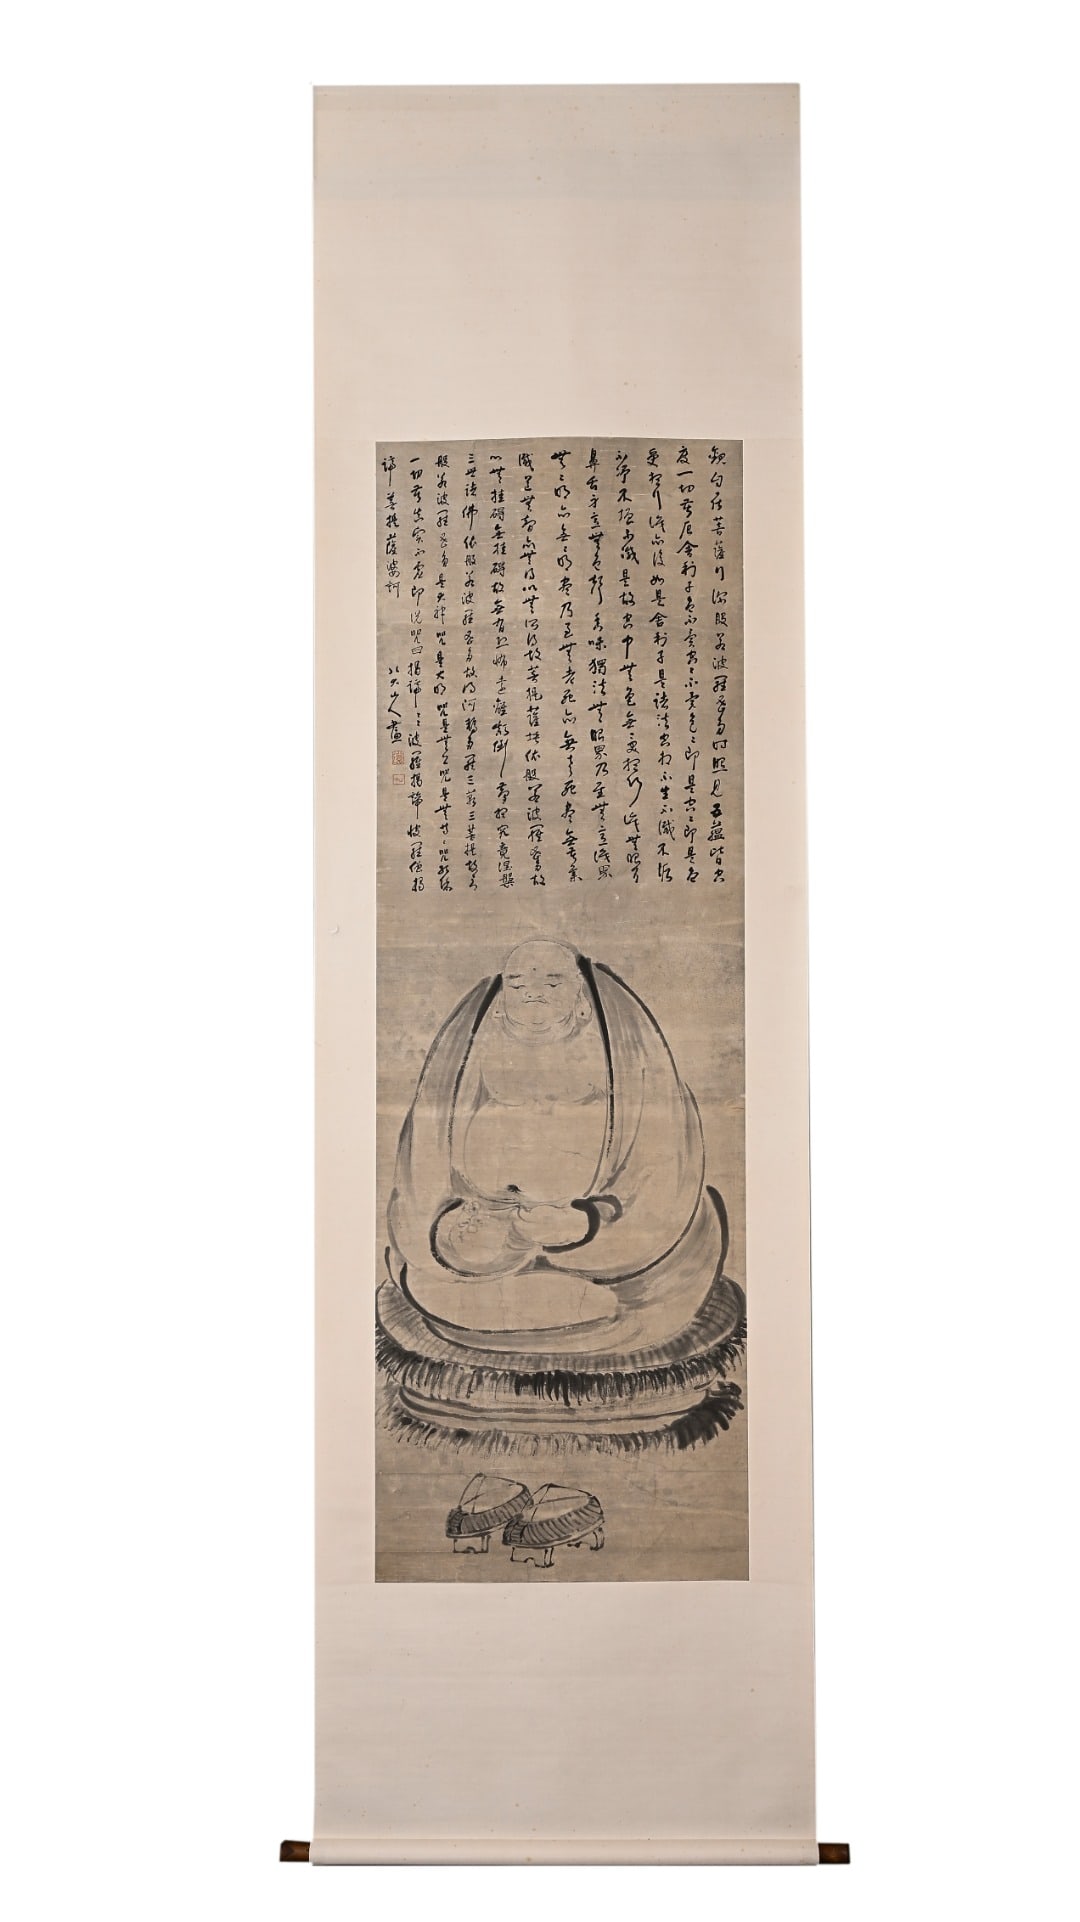 觀自在菩薩行深般若波羅蜜多時照見五蘊皆空
度一切苦厄舍利子色不異空〻不異色〻即是空〻即是色
受想行識亦復如是舍利子是諸法空相不生不滅不垢
不淨不增不減是故空中無色無受想行識無眼耳
鼻舌身意無色聲香味觸法無眼界乃至無意識界
無〻明亦無〻明盡乃至無老死亦無老死盡無苦集
滅道無智亦無得以無所得故菩提薩埵依般若波羅蜜多故
心無挂礙無挂礙故無有恐怖遠離顛倒夢想究竟涅槃
三世諸佛依般若波羅蜜多故得阿耨多羅三藐三菩提故知
般若波羅蜜多是大神咒是大明咒是無上咒是無等〻咒能除
一切苦真實不虛即說咒曰揭諦〻〻波羅揭諦波羅僧揭
諦菩提薩婆訶
八大山人畫